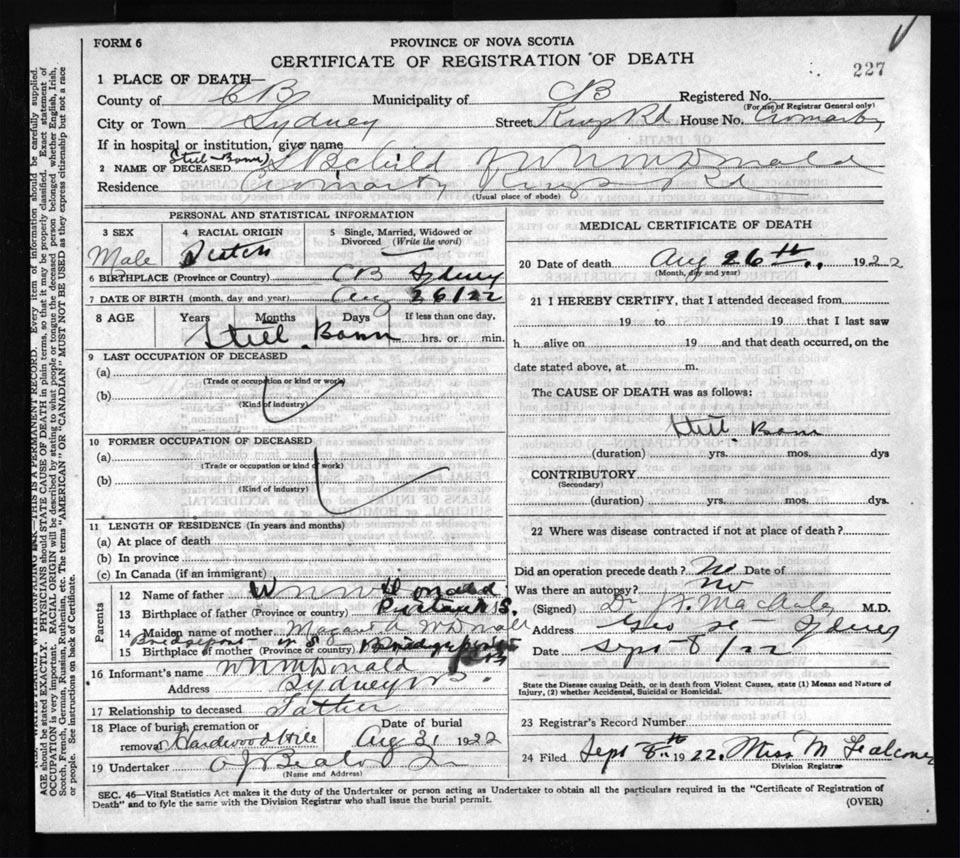 FORM 6
PROVINCE OF NOVA SCOTIA
CERTIFICATE OF REGISTRATION OF DEATH
227
1 PLACE OF DEATH—
County of CB Municipality of CB Registered No.
(For use of Registrar General only)
City or Town Sydney Street Kings Rd House No.
If in hospital or institution, give name
2 NAME OF DECEASED Still-Born Child
Residence Kings Rd
(Usual place of abode)
PERSONAL AND STATISTICAL INFORMATION
3 SEX 4 RACIAL ORIGIN 5 Single, Married, Widowed or Divorced (Write the word)
Male Scotch
6 BIRTHPLACE (Province or Country) CB Sydney
7 DATE OF BIRTH (month, day and year) Aug 26/22
8 AGE Years Months Days If less than one day,
Still Born hrs. or min.
9 LAST OCCUPATION OF DECEASED
(a)
(Trade or occupation or kind or work)
(b)
(Kind of industry)
10 FORMER OCCUPATION OF DECEASED
(a)
(Trade or occupation or kind of work)
(b)
(Kind of industry)
11 LENGTH OF RESIDENCE (In years and months)
(a) At place of death
(b) In province
(c) In Canada (if an immigrant)
Parents
12 Name of father
13 Birthplace of father (Province or country)
14 Maiden name of mother McDonald
15 Birthplace of mother (Province or country) Bridgeport
16 Informant's name McDonald
Address Sydney
17 Relationship to deceased Father
18 Place of burial, cremation or removal Hardwood Hill Date of burial Aug 31 1922
19 Undertaker
(Name and Address)
MEDICAL CERTIFICATE OF DEATH
20 Date of death Aug 26th 1922
(Month, day and year)
21 I HEREBY CERTIFY, that I attended deceased from
19 to 19 that I last saw
h alive on 19 and that death occurred, on the
date stated above, at m.
The CAUSE OF DEATH was as follows:
Still Born
(duration) yrs. mos. dys
CONTRIBUTORY
(Secondary)
(duration) yrs. mos. dys.
22 Where was disease contracted if not at place of death?
Did an operation precede death? No Date of
Was there an autopsy? No
(Signed) Dr M.D.
Address Sydney
Date Sept 8/22
State the Disease causing Death, or in death from Violent Causes, state (1) Means and Nature of Injury, (2) whether Accidental, Suicidal or Homicidal.
23 Registrar's Record Number
24 Filed Sept 8th 1922. Miss M
Division Registrar
SEC. 46—Vital Statistics Act makes it the duty of the Undertaker or person acting as Undertaker to obtain all the particulars required in the "Certificate of Registration of
Death" and to fyle the same with the Division Registrar who shall issue the burial permit.
(OVER)
THIS IS A PERMANENT RECORD. Every item of information should be carefully supplied.
AGE should be stated EXACTLY. PHYSICIANS should STATE CAUSE OF DEATH in plain terms, so that it may be properly classified. Exact statement of
OCCUPATION is very important. RACIAL ORIGIN will be described by stating to what people or tongue the deceased person belonged whether English, Irish,
Scotch, French, German, Russian, Ruthenian, etc. The terms "AMERICAN" OR "CANADIAN" MUST NOT BE USED as they express citizenship but not a race
or people. See instructions on back of Certificate.